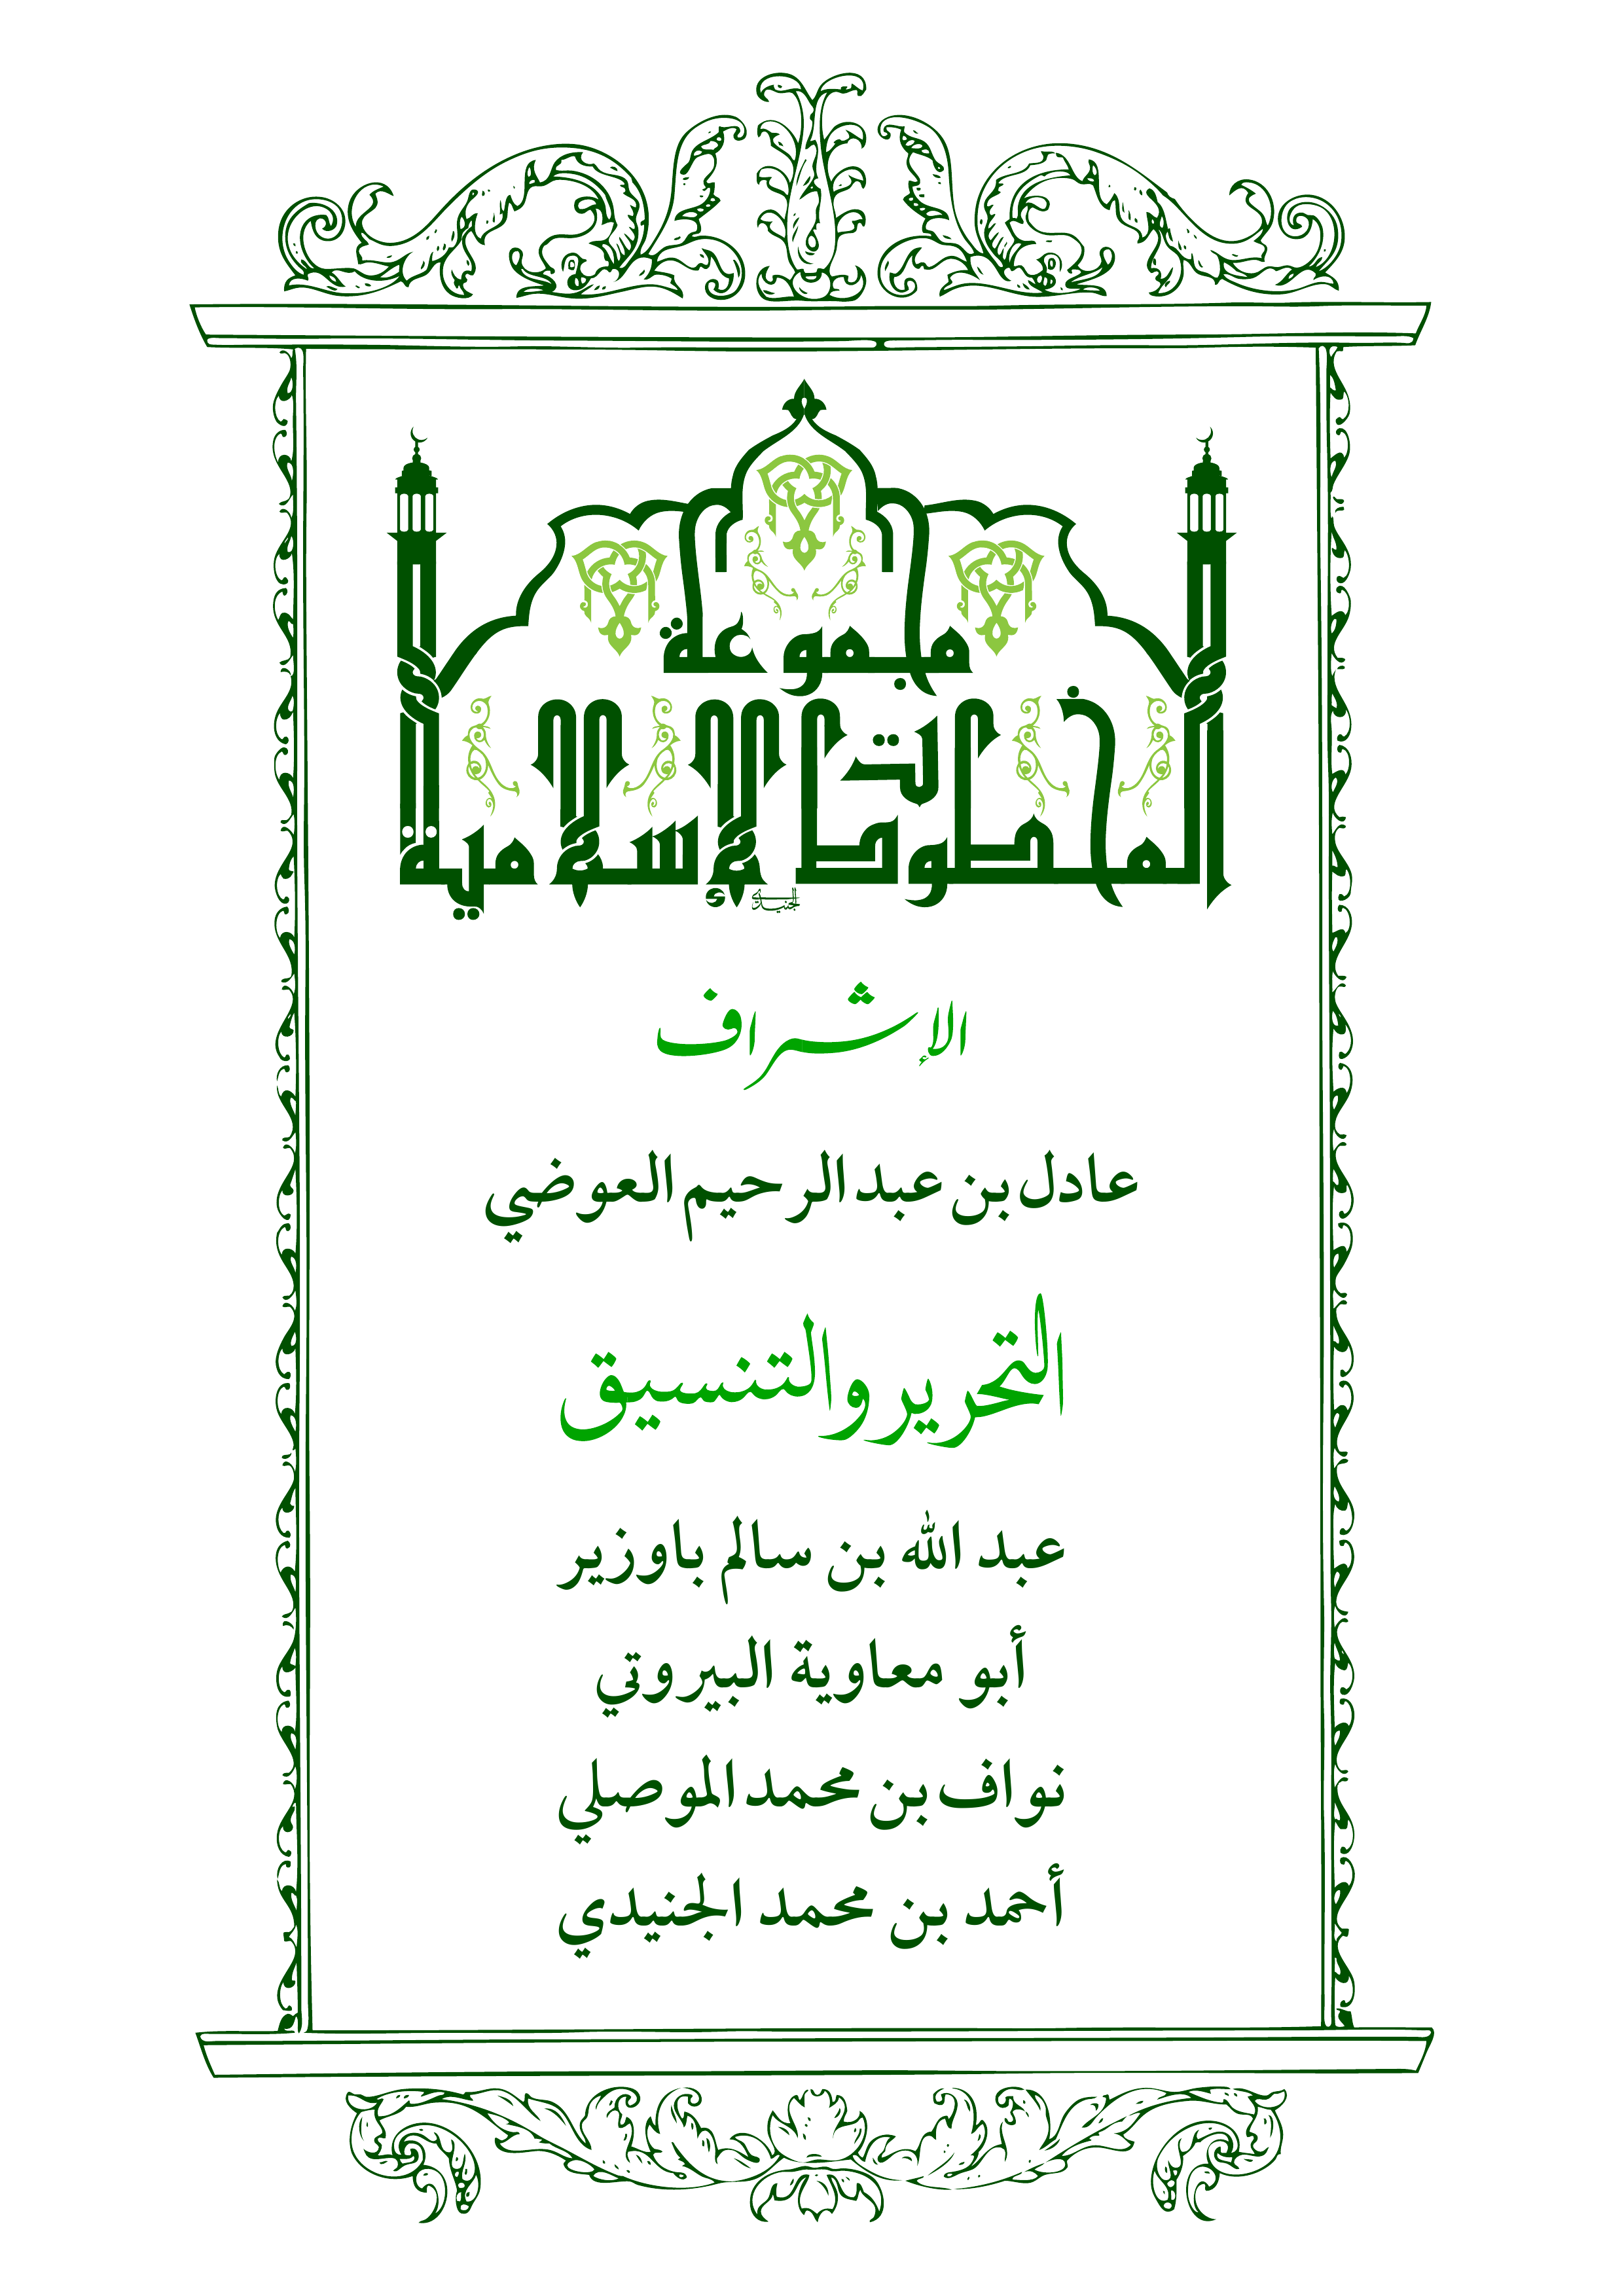 مجموعة
المخطوطات الإسلامية
الجنيدي
الإشراف
عادل بن عبد الرحيم العوضي
التحرير والتنسيق
عبد الله بن سالم باوزير
أبو معاوية البيروتي
نواف بن محمد الموصلي
أحمد بن محمد الجنيدي